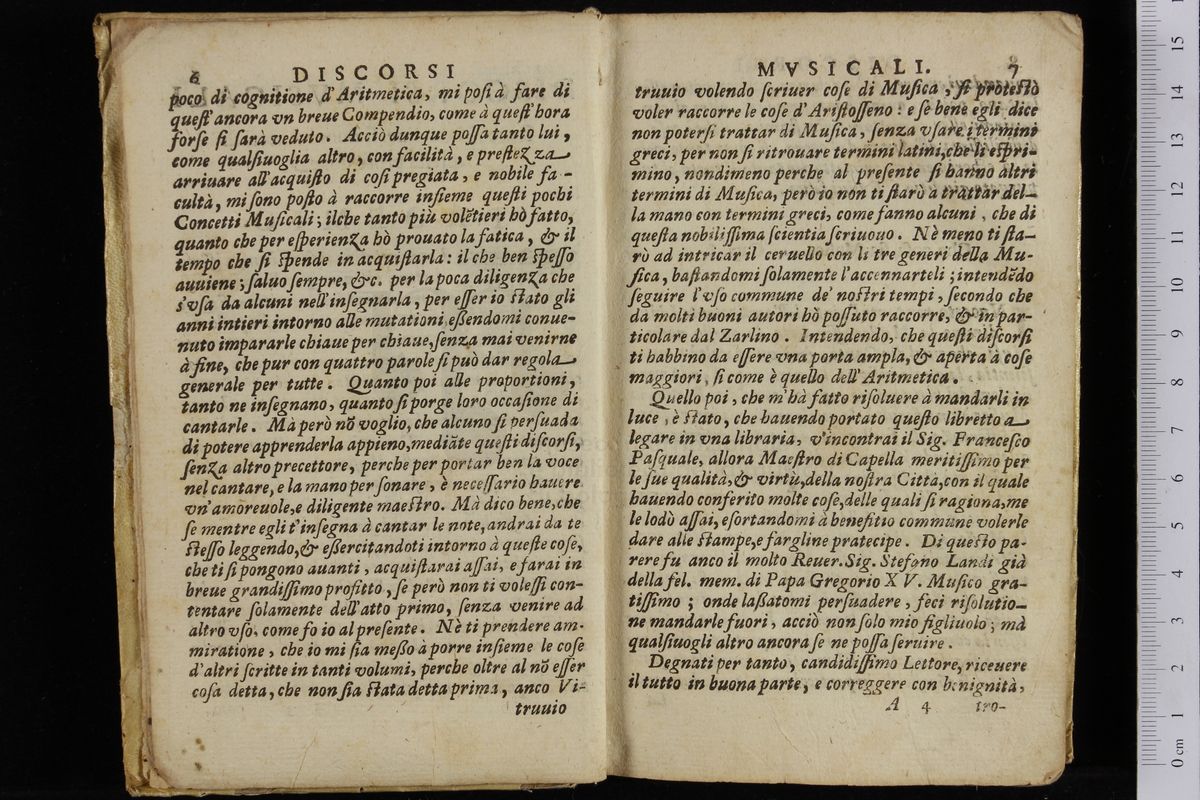 6 DISCORSI
poco di cognitione d'Aritmetica, mi posi à fare di
quest'ancora vn breue Compendio, come à quest'hora
forse si sarà veduto. Acciò dunque possa tanto lui,
come qualsiuoglia altro, con facilità, e prestezza
arriuare all'acquisto di cosi pregiata, e nobile fa-
cultà, mi sono posto à raccorre insieme questi pochi
Concetti Musicali; ilche tanto più volẽtieri hò fatto,
quanto che per esperienza hò prouato la fatica, & il
tempo che si spende in acquistarla: il che ben spesso
auuiene; saluo sempre, &c. per la poca diligenza che
s'vsa da alcuni nell'insegnarla, per esser io stato gli
anni intieri intorno alle mutationi, eßendomi conue-
nuto impararle chiaue per chiaue, senza mai venirne
à fine, che pur con quattro parole si può dar regola
generale per tutte. Quanto poi alle proportioni,
tanto ne insegnano, quanto si porge loro occasione di
cantarle. Mà però nõ voglio, che alcuno si persuada
di potere apprenderla appieno, mediãte questi discorsi,
senza altro precettore, perche per portar ben la voce
nel cantare, e la mano per sonare, è necessario hauere
vn'amoreuole, e diligente maestro. Mà dico bene, che
se mentre egli t'insegna à cantar le note, andrai da te
stesso leggendo, & eßercitandoti intorno à queste cose,
che ti si pongono auanti, acquistarai assai, e farai in
breue grandissimo profitto, se però non ti volessi con-
tentare solamente dell'atto primo, senza venire ad
altro vso, come fo io al presente. Nè ti prendere am-
miratione, che io mi sia meßo à porre insieme le cose
d'altri scritte in tanti volumi, perche oltre al nõ esser
cosa detta, che non sia stata detta prima, anco Vi-
truuio
MVSICALI. 7
truuio volendo scriuer cose di Musica, si protestò
voler raccorre le cose d'Aristosseno: e se bene egli dice
non potersi trattar di Musica, senza vsare i termini
greci, per non si ritrouare termini latini, che li espri-
mino, nondimeno perche al presente si hanno altri
termini di Musica, però io non ti starò a trattar del-
la mano con termini greci, come fanno alcuni, che di
questa nobilissima scientia scriuouo. Nè meno ti sta-
rò ad intricar il ceruello con li tre generi della Mu-
sica, bastandomi solamente l'accennarteli; intendẽdo
seguire l'vso commune de' nostri tempi, secondo che
da molti buoni autori hò possuto raccorre, & in par-
ticolare dal Zarlino. Intendendo, che questi discorsi
ti habbino da essere vna porta ampla, & aperta à cose
maggiori, si come è quello dell'Aritmetica.
Quello poi, che m'hà fatto risoluere à mandarli in
luce, è stato, che hauendo portato questo libretto a
legare in vna libraria, v'incontrai il Sig. Francesco
Pasquale, allora Maestro di Capella meritissimo per
le sue qualità, & virtù, della nostra Città, con il quale
hauendo conferito molte cose, delle quali si ragiona, me
le lodò assai, esortandomi à benefitio commune volerle
dare alle stampe, e fargline pratecipe. Di questo pa-
rere fu anco il molto Reuer. Sig. Stefano Landi già
della fel. mem. di Papa Gregorio XV. Musico gra-
tissimo; onde laßatomi persuadere, feci risolutio-
ne mandarle fuori, acciò non solo mio figliuolo; mà
qualsiuogli altro ancora se ne possa seruire.
Degnati per tanto, candidissimo Lettore, riceuere
il tutto in buona parte, e correggere con benignità,
A 4 tro-
0 cm 1 2 3 4 5 6 7 8 9 10 11 12 13 14 15